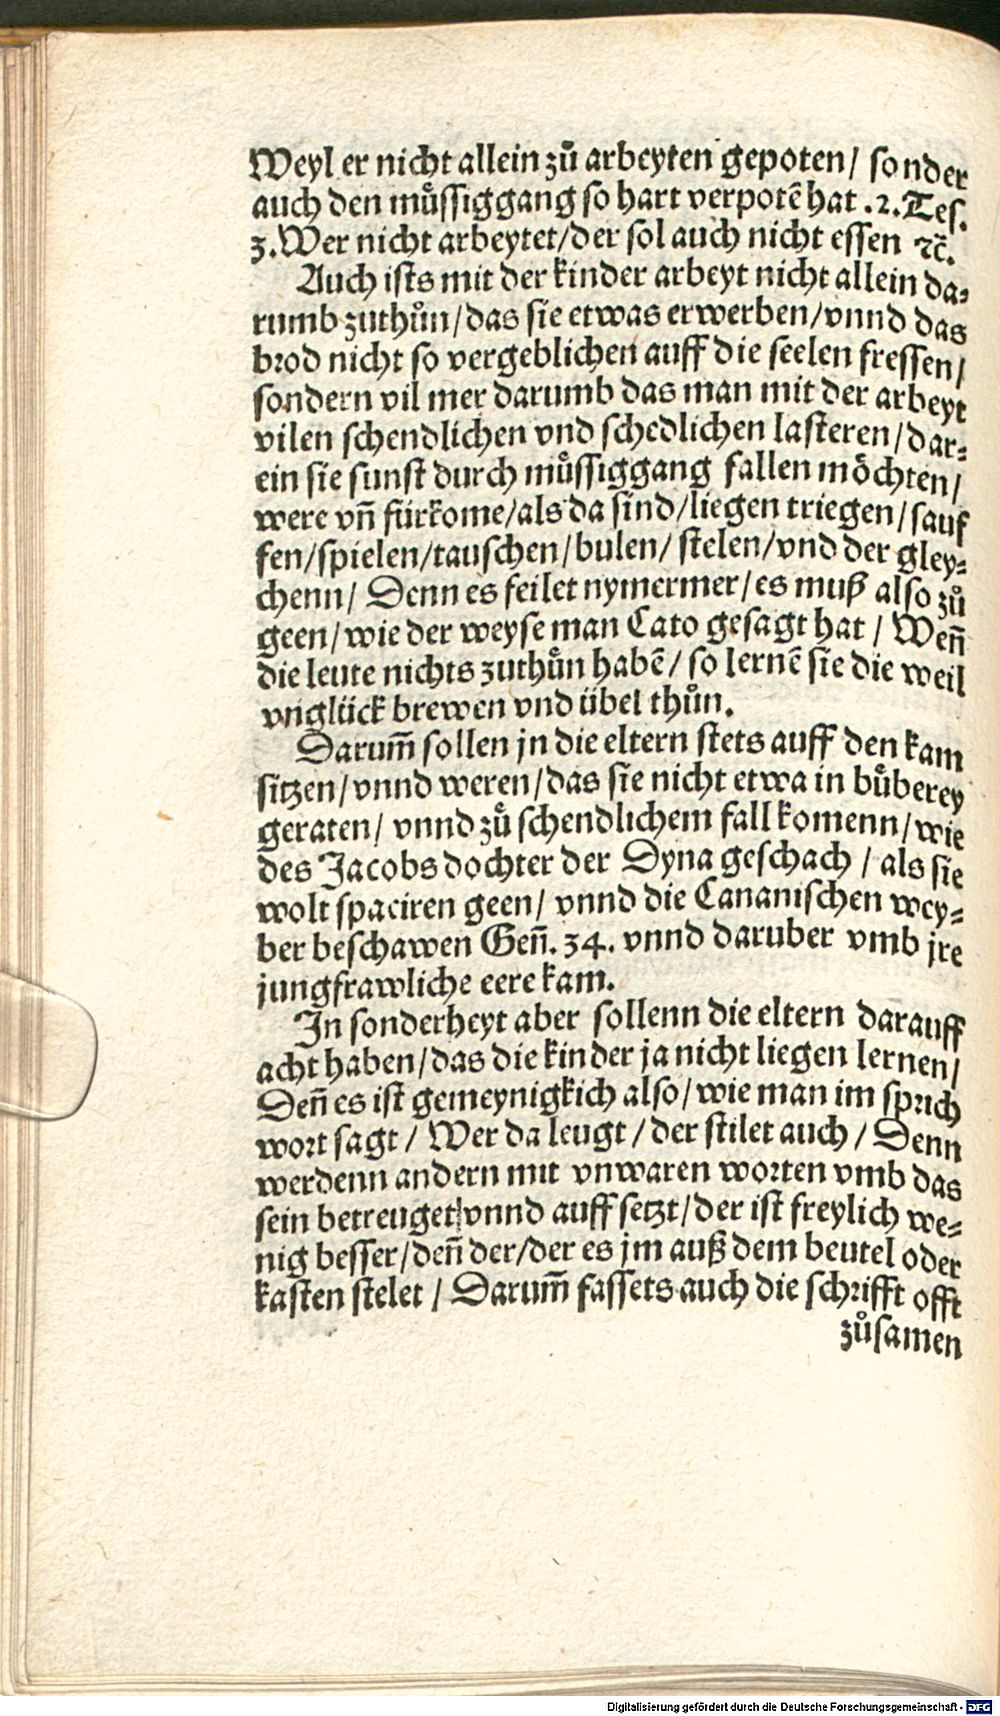 Weyl er nicht allein zů arbeyten gepoten/ sonder
auch den můssiggang so hart verpotẽ hat .2.Tes.
3.Wer nicht arbeytet/der sol auch nicht essen ⁊c̃.
Auch ists mit der kinder arbeyt nicht allein da⸗
rumb zuthůn/das sie etwas erwerben/vnnd das
brod nicht so vergeblichen auff die seelen fressen/
sondern vil mer darumb das man mit der arbeyt
vilen schendlichen vnd schedlichen lasteren/dar⸗
ein sie sunst durch můssiggang fallen mo̊chten/
were vñ fürkome/als da sind/liegen triegen/sauf
fen/spielen/tauschen/bulen/ stelen/vnd der gley⸗
chenn/ Denn es feilet nymermer/es muß also zů
geen/wie der weyse man Cato gesagt hat / Weñ
die leute nichts zuthůn habẽ/ so lernẽ sie die weil
vnglück brewen vnd übel thůn.
Darum̃ sollen jn die eltern stets auff den kam
sitzen/vnnd weren/das sie nicht etwa in bůberey
geraten/ vnnd zů schendlichem fall komenn/wie
des Jacobs dochter der Dyna geschach / als sie
wolt spaciren geen/ vnnd die Cananischen wey⸗
ber beschawen Geñ. 34. vnnd daruber vmb jre
jungfrawliche eere kam.
In sonderheyt aber sollenn die eltern darauff
acht haben/das die kinder ja nicht liegen lernen/
Deñ es ist gemeynigkich also/wie man im sprich
wort sagt / Wer da leugt/der stilet auch / Denn
werdenn andern mit vnwaren worten vmb das
sein betreuget/vnnd auff setzt/der ist freylich we⸗
nig besser/deñ der/der es jm auß dem beutel oder
kasten stelet / Darum̃ fassets auch die schrifft offt
zůsamen
Digitalisierung gefördert durch die Deutsche Forschungsgemeinschaft - DFG